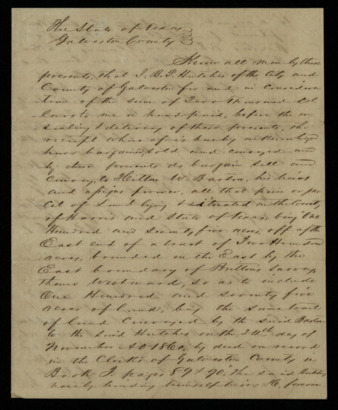 The State of Texas
Galveston County
Know all men by these
presents, that I, B. F. Hutches of the City and
County of Galveston for and in considera
tion of the sum of Two Thousand Dol
lars to me in hand paid, before the en
sealing & delivery of these presents, the
receipt whereof is hereby acknowledged
have bargained, sold and conveyed and
by these presents do bargain sell and
convey, to William W. his heirs
and assigns forever, all that piece or par
cel of land lying & situated in the County
of Harris and State of Texas being One
Hundred and Seventy five acres off of the
East end of a tract of Two Hundred
acres, bounded on the East by the
East boundary of Survey,
thence Westward, so as to include
One Hundred and Seventy five
acres of land, being the same tract
of land conveyed by the said
to the said Hutches on the 24th day of
November AD 186 by deed on record
in the Clerks of Galveston County in
Book I. pages 89 & 90, the said Hutches
hereby binding himself heirs &